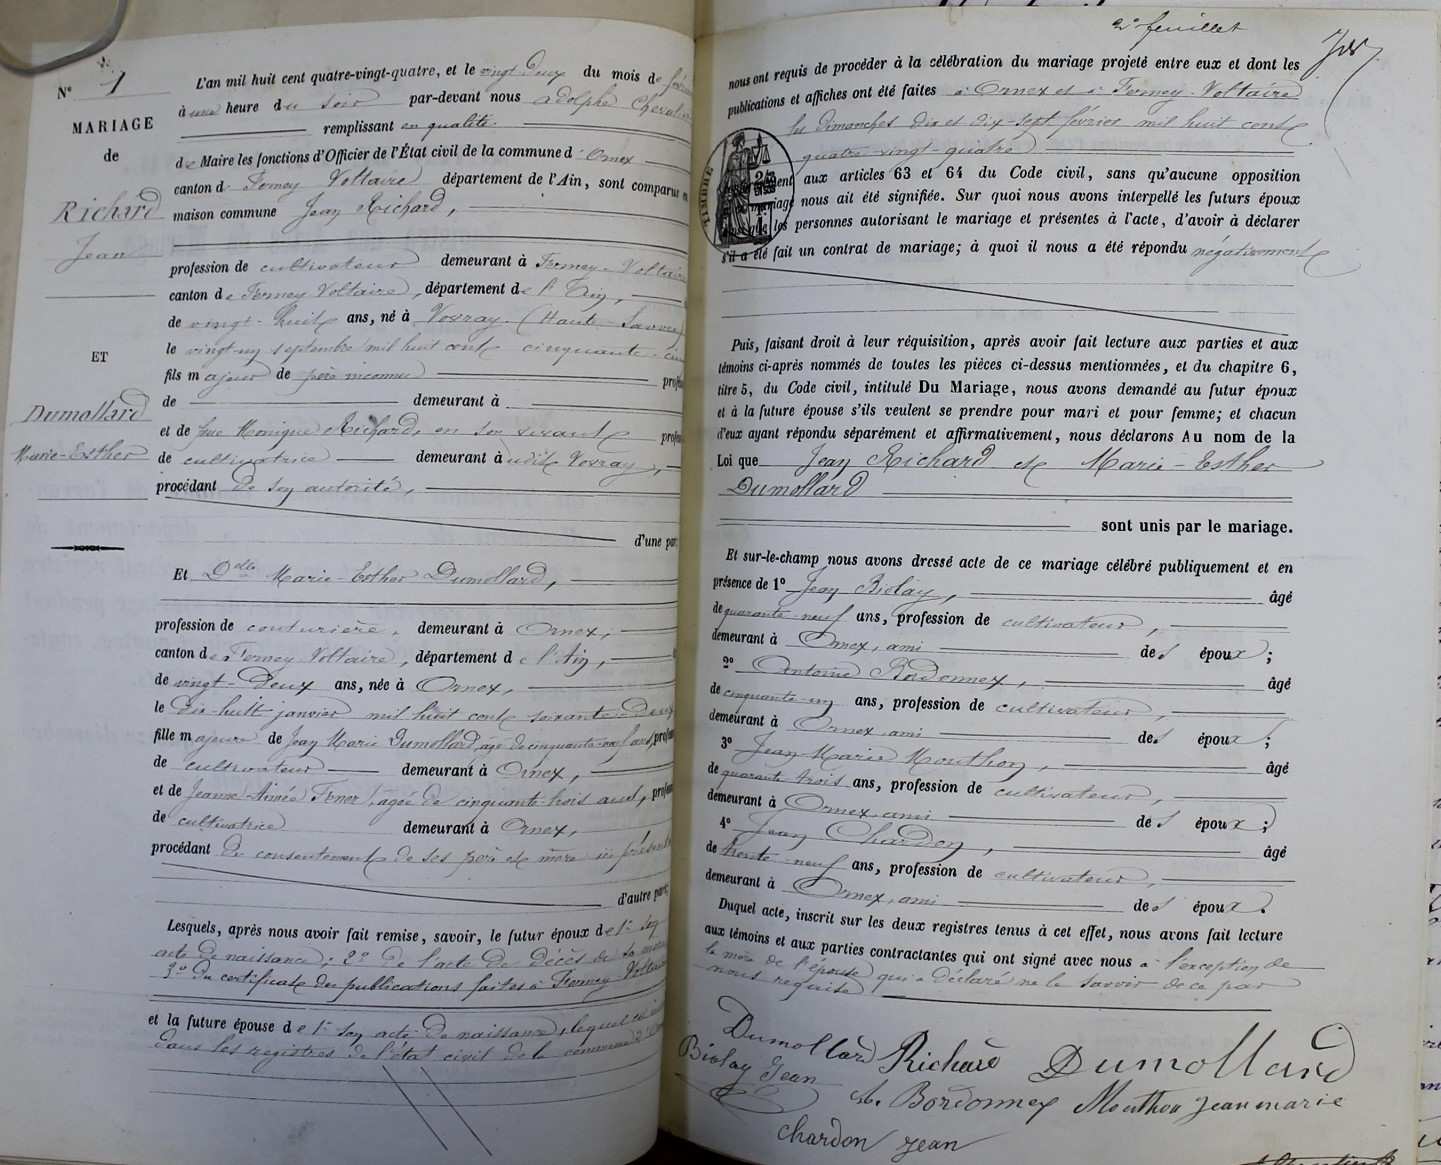 N° 1
MARIAGE
de
Richard
Jean
ET
Dumollard
Marie-Esther
L'an mil huit cent quatre-vingt-quatre, et le vingt-deux du mois de
à une heure du soir par-devant nous Adolphe Chevalier
remplissant en qualité
de Maire les fonctions d'Officier de l'État civil de la commune d'Ornex
canton de Ferney Voltaire département de l'Ain, sont comparus en
maison commune Jean Richard,
profession de cultivateur demeurant à Ferney-Voltaire
canton de Ferney Voltaire, département de l'Ain,
de vingt-huit ans, né à Vovray (Haute-Savoie
le vingt-un septembre mil huit cent cinquante-cinq
fils majeur de père inconnu profes
de demeurant à
et de feue Monique Richard, en son vivant profes
de cultivatrice demeurant audit Vovray,
procédant de son autorité,
d'une part;
Et Dlle Marie-Esther Dumollard,
profession de couturière, demeurant à Ornex,
canton de Ferney Voltaire, département de l'Ain,
de vingt-deux ans, née à Ornex,
le dix-huit janvier mil huit cent soixante-deux
fille majeure de Jean Marie Dumollard, âgé de cinquante-neuf ans, profes
de cultivateur demeurant à Ornex,
et de Jeanne-Aimée, âgée de cinquante-trois ans, profes
de cultivatrice demeurant à Ornex,
procédant du consentement de ses père et mère ici présents
d'autre part;
Lesquels, après nous avoir fait remise, savoir, le futur époux de 1° son
acte de naissance; 2° de l'acte de décès de sa mère
3° du certificat des publications faites à Ferney Voltaire
et la future épouse de 1° son acte de naissance, lequel est
dans les registres de l'état civil de la commune d'
2e feuillet
nous ont requis de procéder à la célébration du mariage projeté entre eux et dont les
publications et affiches ont été faites à Ornex et à Ferney-Voltaire
les dimanches dix et dix-sept février mil huit cent
quatre-vingt-quatre
TIMBRE
aux articles 63 et 64 du Code civil, sans qu'aucune opposition
mariage nous ait été signifiée. Sur quoi nous avons interpellé les futurs époux
ainsi que les personnes autorisant le mariage et présentes à l'acte, d'avoir à déclarer
s'il a été fait un contrat de mariage; à quoi il nous a été répondu négativement
Puis, faisant droit à leur réquisition, après avoir fait lecture aux parties et aux
témoins ci-après nommés de toutes les pièces ci-dessus mentionnées, et du chapitre 6,
titre 5, du Code civil, intitulé Du Mariage, nous avons demandé au futur époux
et à la future épouse s'ils veulent se prendre pour mari et pour femme; et chacun
d'eux ayant répondu séparément et affirmativement, nous déclarons Au nom de la
Loi que Jean Richard et Marie-Esther
Dumollard
sont unis par le mariage.
Et sur-le-champ nous avons dressé acte de ce mariage célébré publiquement et en
présence de 1° Jean Biolay, âgé
de quarante-neuf ans, profession de cultivateur,
demeurant à Ornex, ami des époux;
2° Antoine Bordonnex, âgé
de cinquante-un ans, profession de cultivateur,
demeurant à Ornex, ami des époux;
3° Jean Marie Mouthon, âgé
de quarante trois ans, profession de cultivateur,
demeurant à Ornex, ami des époux;
4° Jean Chardon, âgé
de trente-neuf ans, profession de cultivateur,
demeurant à Ornex, ami des époux.
Duquel acte, inscrit sur les deux registres tenus à cet effet, nous avons fait lecture
aux témoins et aux parties contractantes qui ont signé avec nous à l'exception de
la mère de l'épouse qui a déclaré ne le savoir de ce par
nous requise
Dumollard Richard Dumollard
Biolay Jean
A. Bordonnex Mouthon jean marie
chardon jean